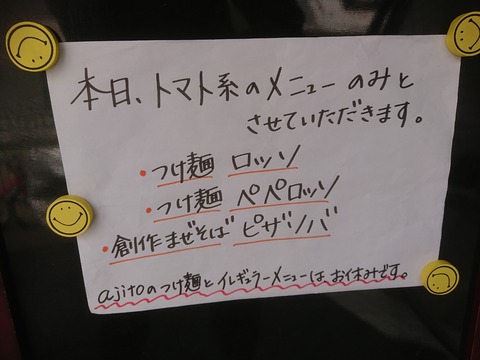 本日、トマト系のメニューのみと
させていただきます。
・つけ麺 ロッソ
・つけ麺 ペペロッソ
・創作まぜそば ピザソバ
ajitoのつけ麺とイレギュラーメニューはお休みです。